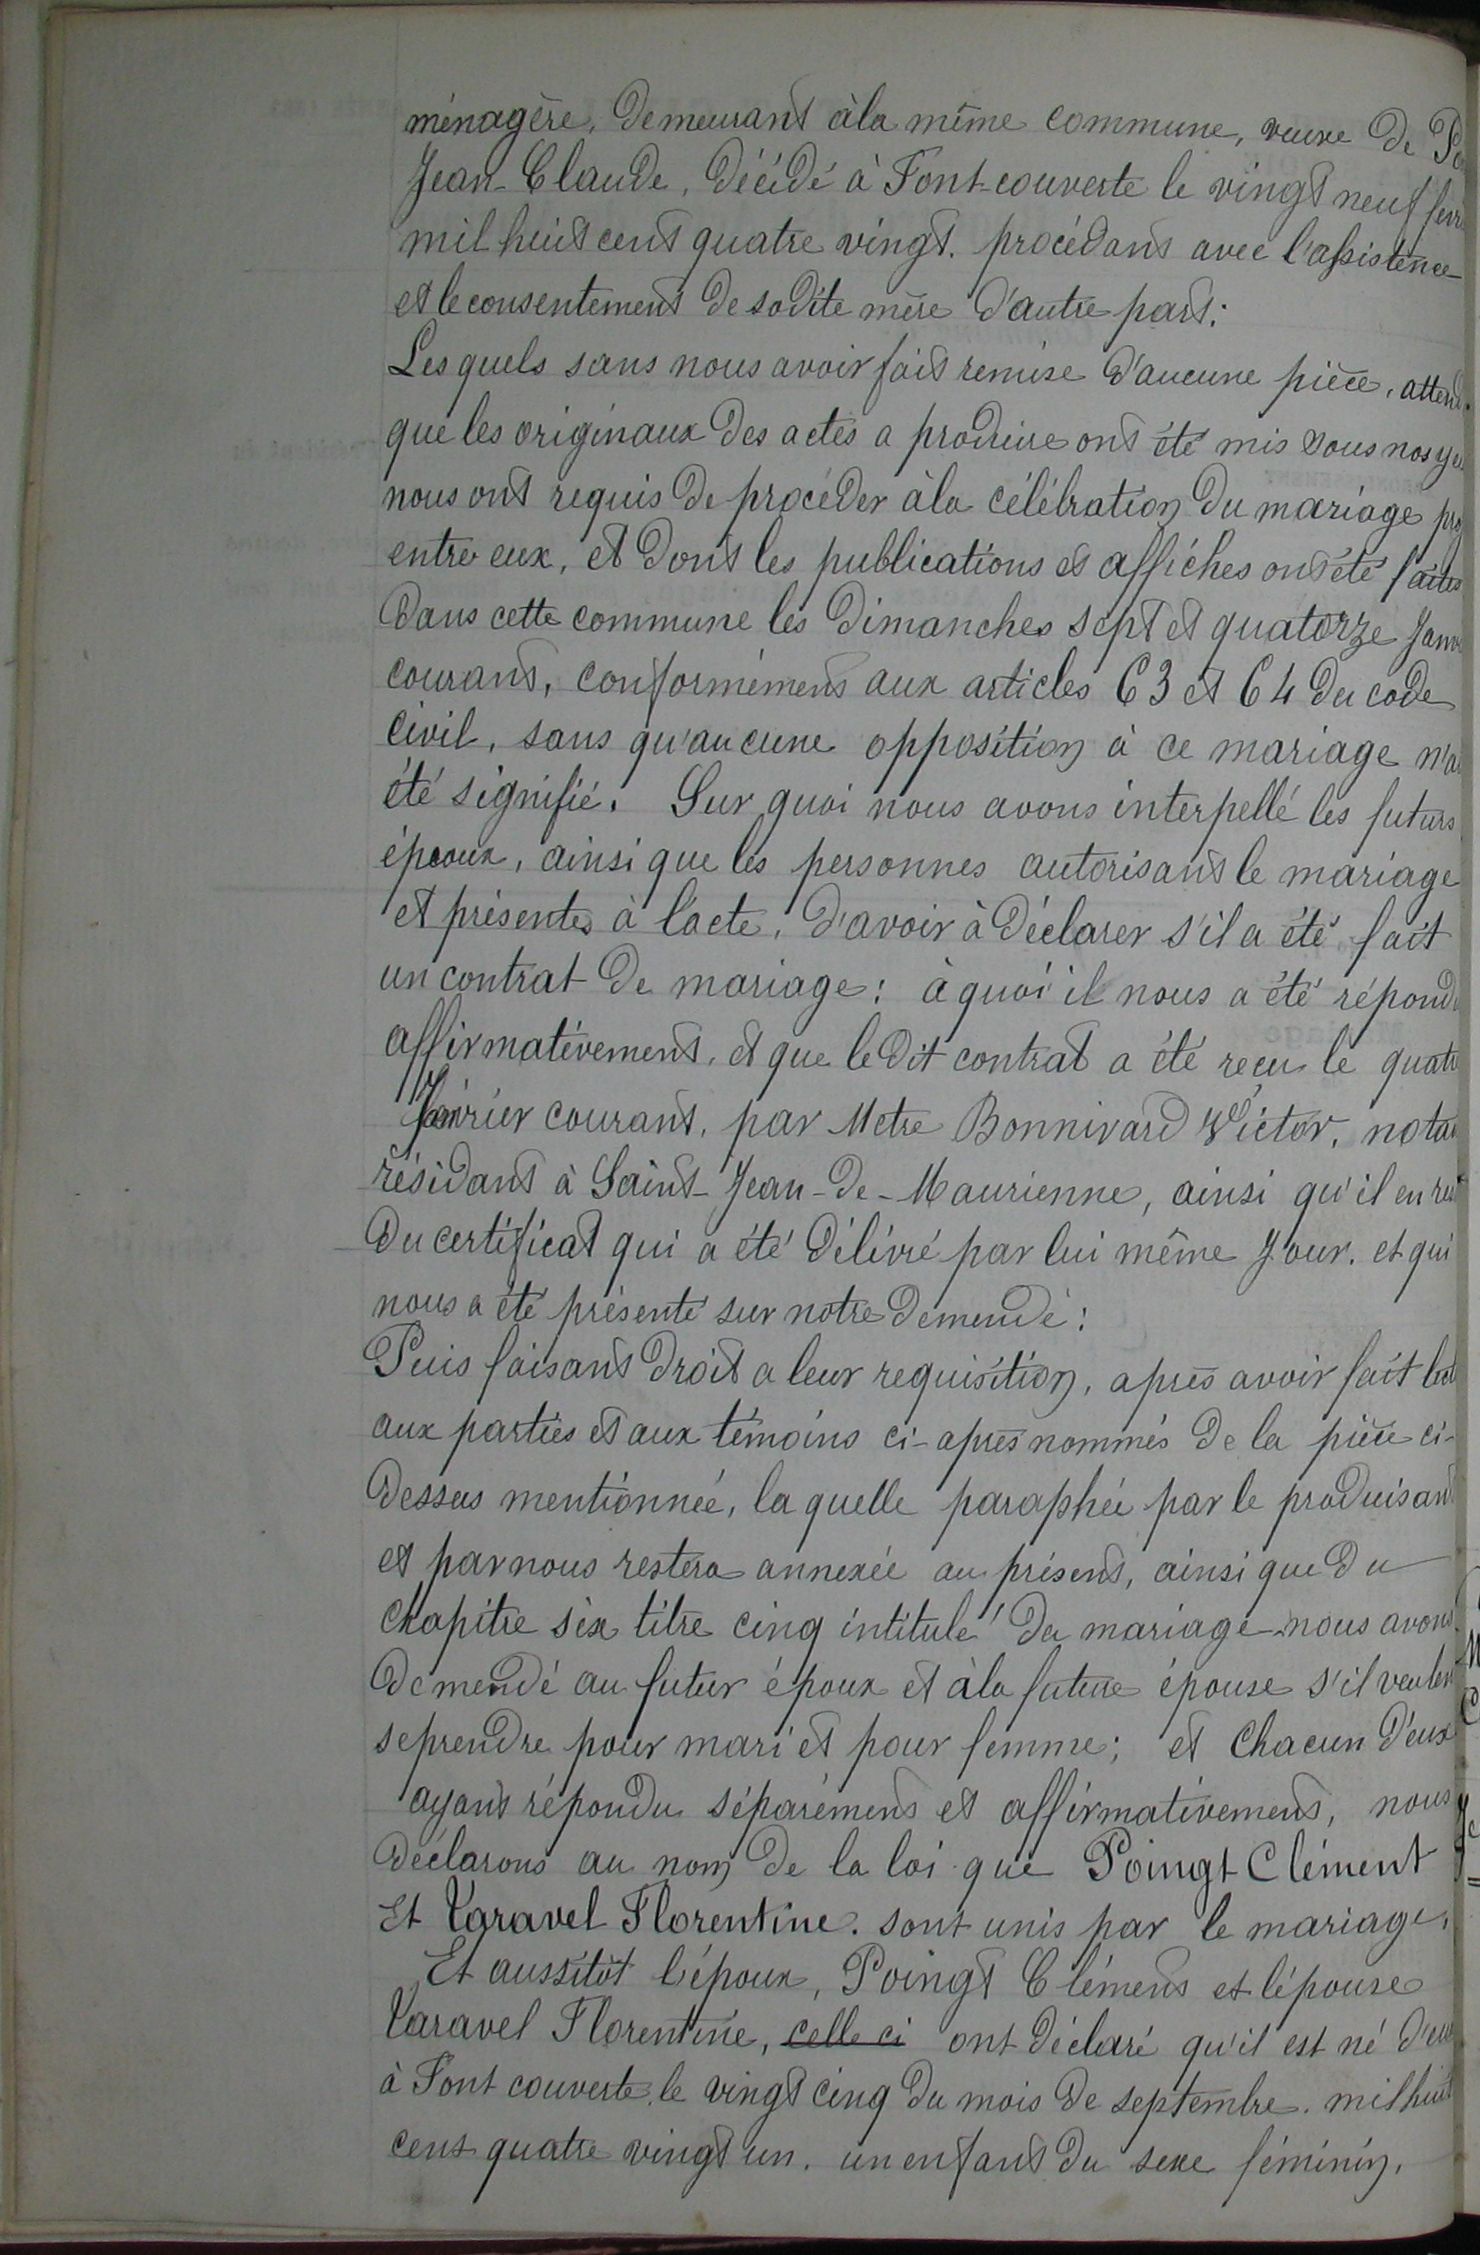 ménagère, demeurant à la même commune, veuve de
Jean-Claude, décédé à Font-couverte le vingt neuf
mil huit cent quatre vingt. procédant avec l'assistence
et le consentement de sadite mère d'autre part:
Lesquels sans nous avoir fait remise d'aucune pièce, attend
que les originaux des actes a produire ont été mis sous nos
nous ont requis de procéder à la célébration du mariage
entre eux, et dont les publications et affiches ont été faites
dans cette commune les dimanches sept et quatorze Janv
courant, conformément aux articles 63 et 64 du code
civil, sans qu'aucune opposition à ce mariage
été signifié. Sur quoi nous avons interpellé les futurs
époux, ainsi que les personnes autorisant le mariage
et présentes à l'acte, d'avoir à déclarer s'il a été fait
un contrat de mariage: à quoi il nous a été répond
affirmativement, et que le dit contrat a été reçu le quat
courant, par Metre Bonnivard Victor, nota
résidant à Saint-Jean-de-Maurienne, ainsi qu'il en
du certificat qui a été délivré par lui même Jour. et qui
nous a été présenté sur notre demende:
Puis faisant droit a leur requisition, après avoir fait lect
aux parties et aux témoins ci-après nommés de la pièce ci-
dessus mentionnée, la quelle paraphée par le produisant
et par nous restera annexée au présent, ainsi que du
chapitre six titre cinq intitulé du mariage nous avons
demendé au futur époux et à la future épouse s'il veulent
se prendre pour mari et pour femme; et chacun d'eux
ayant répondu séparément et affirmativement, nous
déclarons au nom de la loi que Poingt Clément
Et Varavel Florentine. sont unis par le mariage.
Et aussitôt l'époux, Poingt Clément et l'épouse
Varavel Florentine, celle ci ont déclaré qu'il est né d'eux
à Font couverte le vingt cinq du mois de septembre. mil huit
cent quatre vingt un. un enfant du sexe féminin,